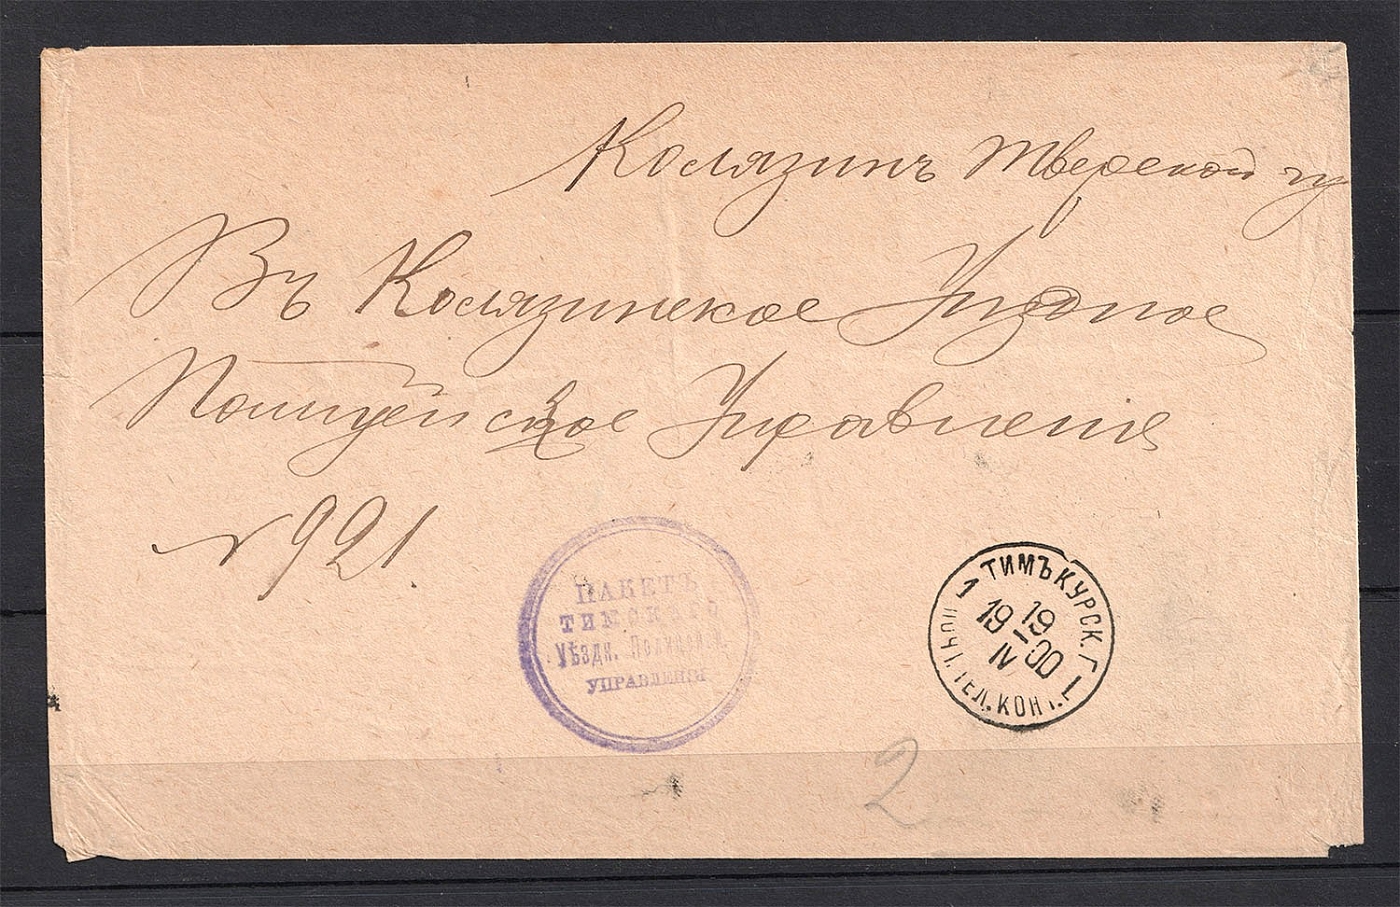 Колязинъ Тверской гу
Въ Колязинское Уѣздное
Полицейское Управленіе
№ 921.
ПАКЕТЪ
ТИМСКАГО
Уѣздн. Полицейск.
УПРАВЛЕНІЯ
ТИМЪ КУРСК. Г.
19 19
IV 00
ПОЧТ. ТЕЛ. КОНТ.
1 1
2